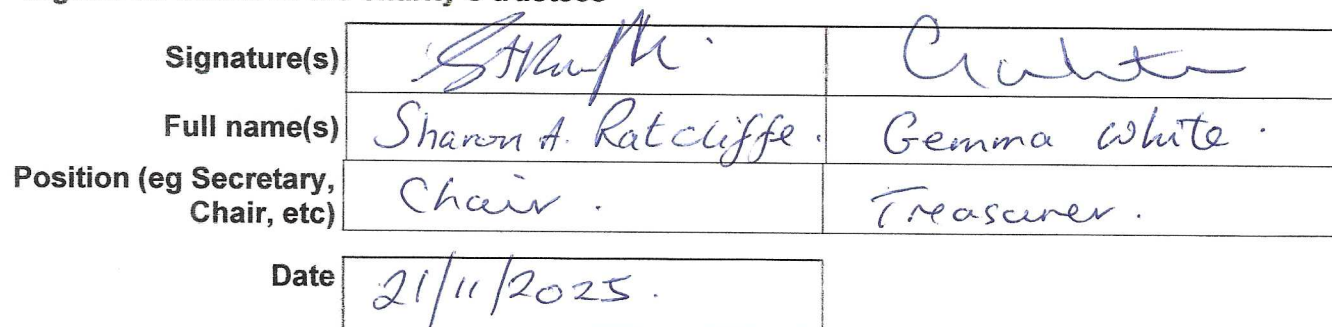 Signature(s)
Full name(s) Sharon A. Ratcliffe. Gemma White.
Position (eg Secretary, Chair. Treasurer.
Chair, etc)
Date 21/11/2025.